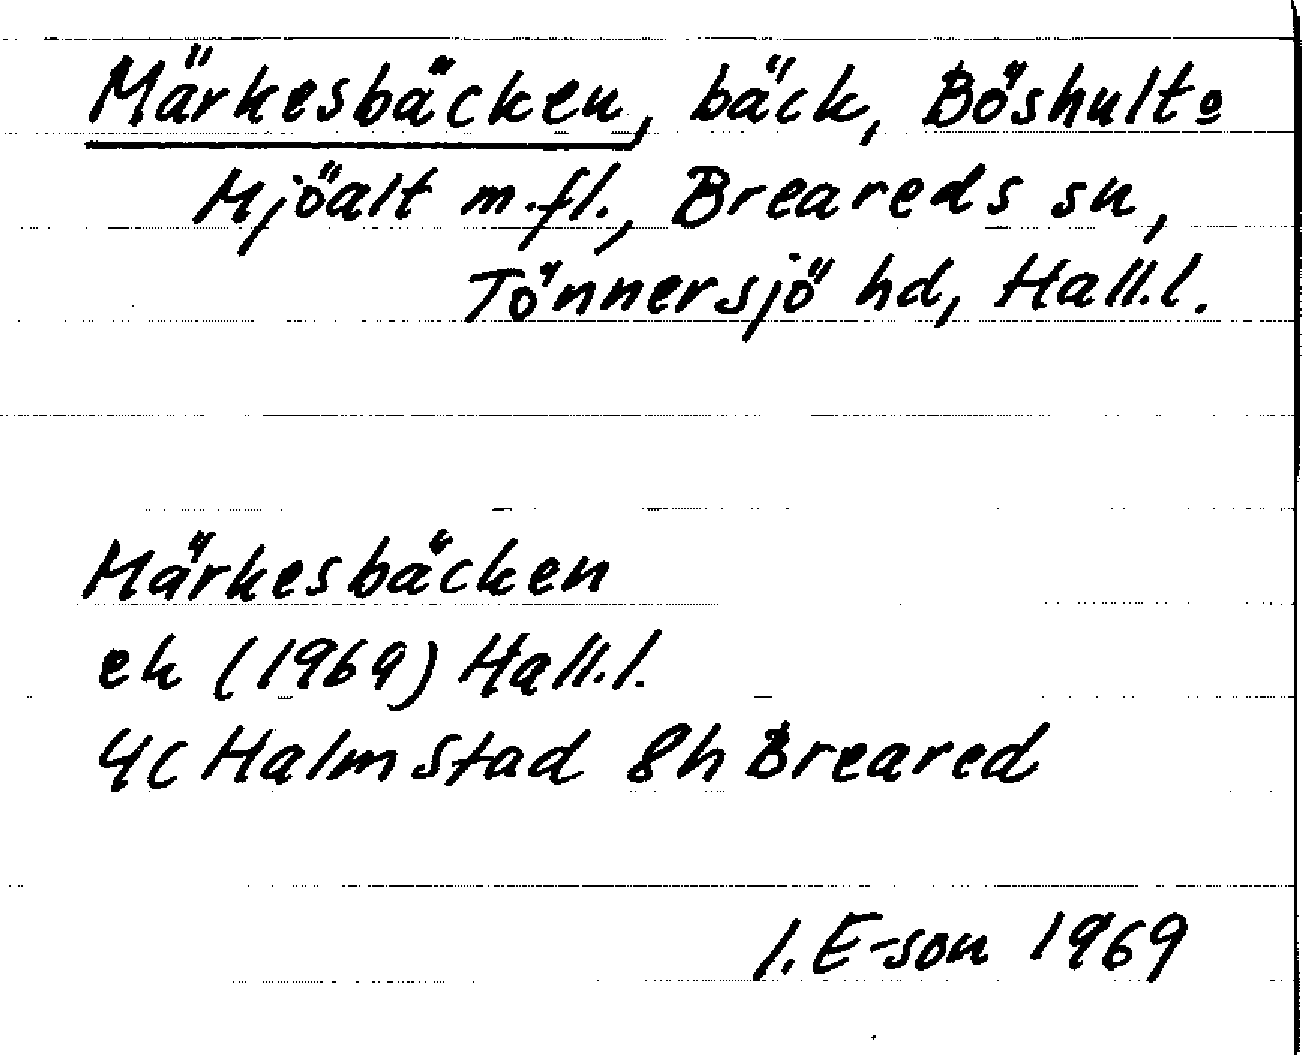 Märkesbäcken, bäck, Böshult o
Mjöalt m.fl., Breareds sn,
Tönnersjö hd, Hall.l.
Märkesbäcken
ek (1969) Hall.l.
4C Halmstad 8h Breared
I. E-son 1969